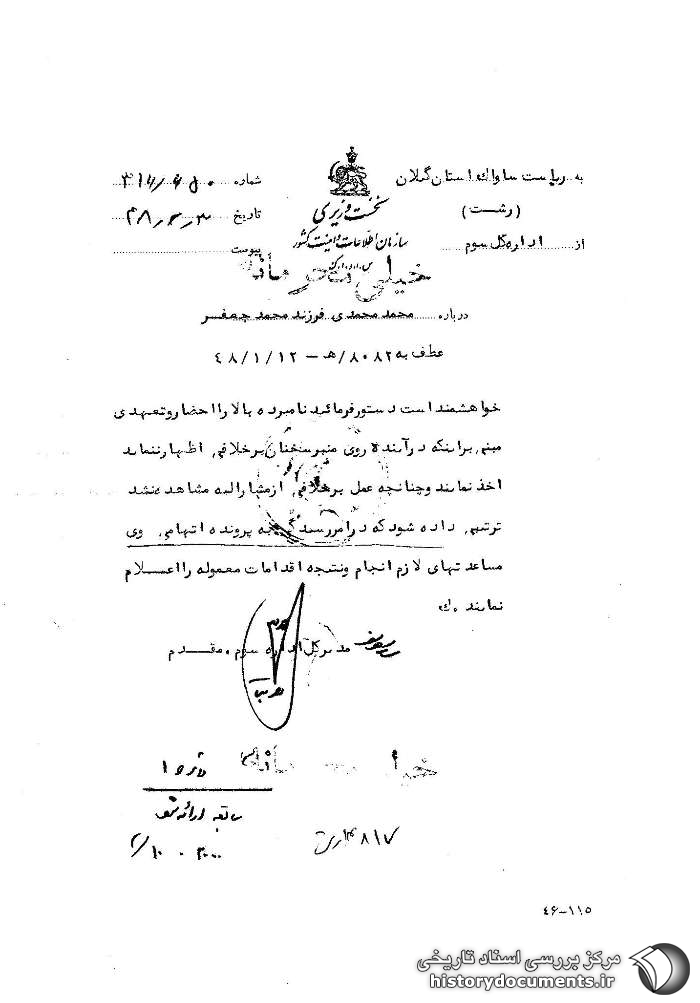 به ریاست ساواک استان گیلان
(رشت)
از اداره کل سوم
نخست وزیری
سازمان اطلاعات و امنیت کشور
س.ا.و.ا.ک
شماره
تاریخ
پیوست
خیلی محرمانه
درباره محمد محمدی فرزند محمد جعفر
عطف به ۸۰۸۲/هـ - ۴۸/۱/۱۲
خواهشمند است دستور فرمائید نامبرده بالا را احضار و تعهدی
مبنی براینکه در آینده روی منبر سخنان برخلافی اظهار ننماید
اخذ نمایند و چنانچه عمل برخلافی از مشارالیه مشاهده نشد
ترتیبی داده شود که در امر رسیدگی به پرونده اتهامی وی
مساعدتهای لازم انجام و نتیجه اقدامات معموله را اعلام
نمایند . ک
مدیرکل اداره سوم . مقدم
خیلی محرمانه
سابقه ارائه شود
۴۶-۱۱۵
مرکز بررسی اسناد تاریخی
historydocuments.ir